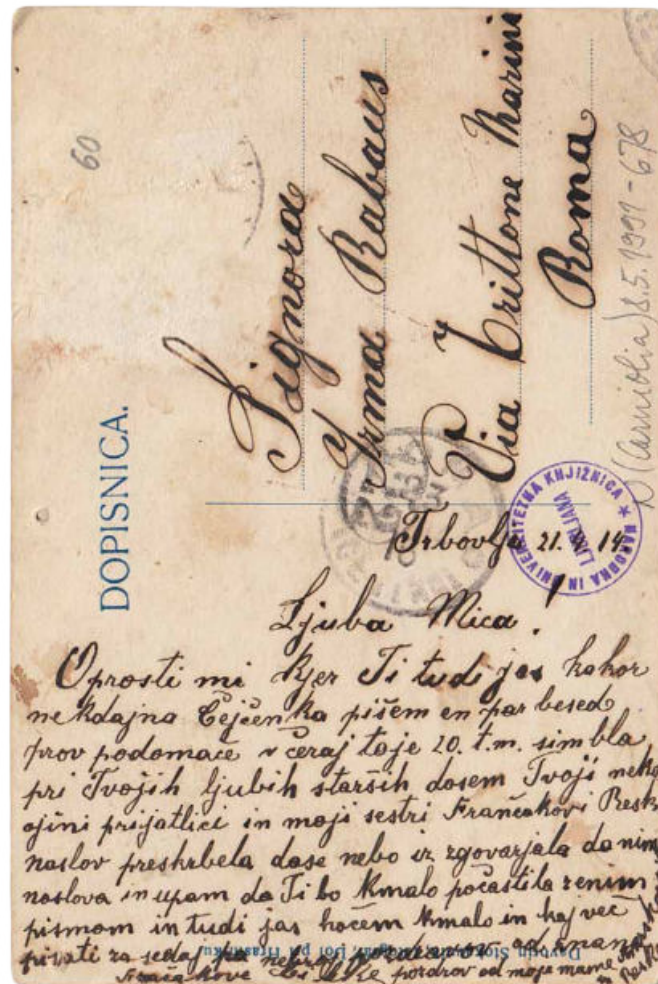 DOPISNICA.
60
Signora
Irma Rabaus
Via Trittone Marini
Roma
D (Carniolia) 8.5.1991-678
NARODNA IN UNIVERZITETNA KNJIŽNICA * LJUBLJANA
Trbovlje 21. 14
Ljuba Mica!
Oprosti mi kjer Ti tudi jas kakor
nekdajna Čejčenka pišem en par besed
prov podomače včeraj toje 20. t.m. sim bla
pri Tvojih ljubih starših dosem Tvoji neko
ojini prijatlici in moji sestri Frančakovi Resk
naslov preskrbela dase nebo iz zgovarjala danima
naslova in upam da Ti bo kmalo počastila zenim
pismom in tudi jas hočem kmalo in kaj več
pisati za sedaj pozdrav od znane
Frančakove pozdrov od moje mame